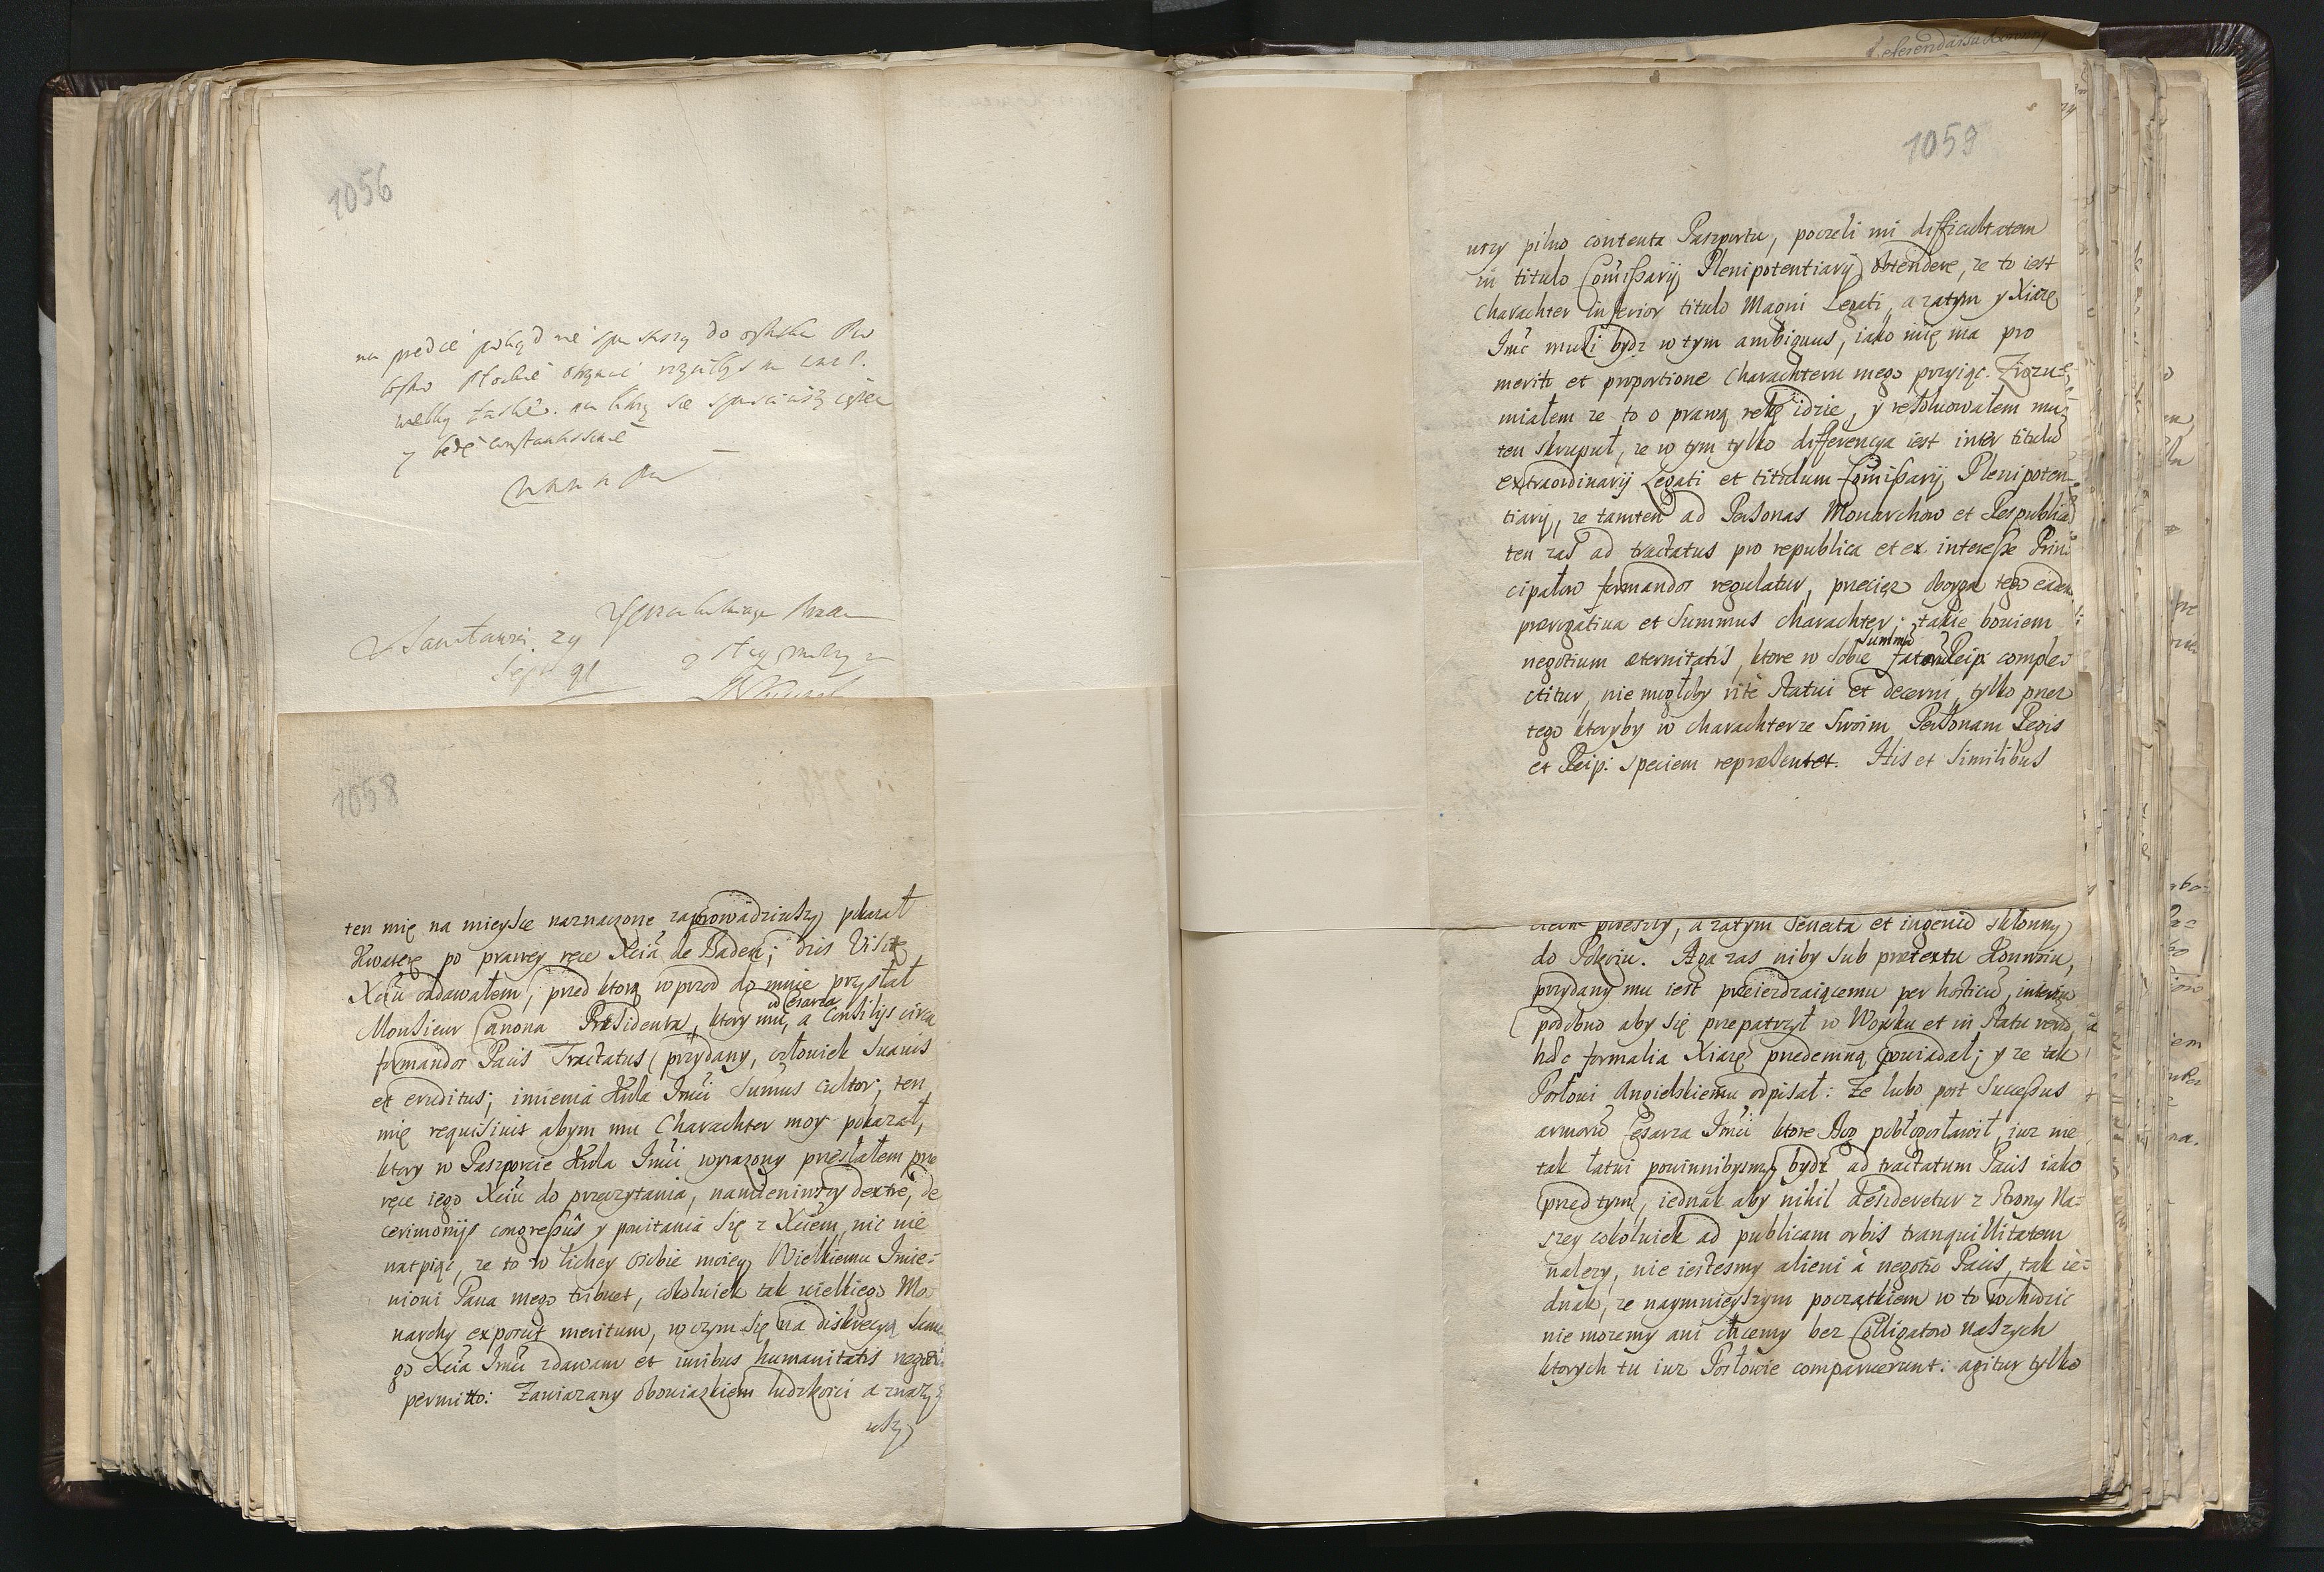 1056
na prędce pokąd nie
tylko
wielką łaskę. na którą się
y będę constantissime
Sept 91
1058
ten mię na mieysce naznaczone zaprowadziwszy pokazał
Kwaterę po prawey ręce Xcia de Baden; dzis Visitę
Xciu oddawałem, przed ktorą wprzod do mnie przysłał
Monsieur Canona Præsidenta, ktory mu, od Cesarza a Consilijs circa
formandos Pacis Tractatus przydany, człowiek suavis
et eruditus; imienia Krola Jmći sumus cultor; ten
mię requisiuit abym mu Charachter moy pokazał,
ktory w Paszporcie Krola Jmći wyrazony przesłałem przez
ręce iego Xciu do przeczytania, namieniwszy dextre, de
cerimonijs congressûs y powitania się z Xciem, nic nie
nątpiąc, ze to w lichey osobie moiey Wielkiemu Imie=
nioui Pana mego tribuet, cokolwiek tak wielkiego Mo
narchy exposcit meritum, w czym się na diskrecyą same
go Xcia Jmći zdawam et iuribus humanitatis
permitto: Zawiązany obowiązkiem ludzkosci
wszy
1059
wszy pilno contenta Paszportu, poczeli mi difficultatem
in titulo Com̃issarij Plenipotentiarij obtendere, ze to iest
Charachter inferior titulo Magni Legati, a zatym y Xiąze
Jmć musi bydz w tym ambiguus, iako mię ma pro
merito et proportione Charachteru mego przyiąc. Zrozu=
miałem ze to o prawą rekę idzie, y resoluowałem mu
ten skrupuł, ze w tym tylko differencya iest inter titulũ
extraordinarij Legati et titulum Com̃issarij Plenipoten=
tiarij, ze tamten ad Personas Monarchow et Respublicas
ten zas ad tractatus pro republica et ex interesse Prin
cipatow formandos regulatur, przeciez oboyga tego eadem
prærogatiua et summus charachter; takie bowiem
negotium æternitatis, ktore w sobie summã fatorũ Reip: comple
ctitur, nie mogłoby ritè statui et decerni, tylko przez
tego ktoryby w charachterze swoim Personam Regis
et Reip: speciem repræsentet. His et similibus
przeszły, a zatym senecta et ingenio skłonny
do Pokoiu. Aga zas niby sub prætextu Konwoiu,
przydany mu iest przeiezdzaiącemu per hosticũ,
podobno aby się przepatrzył w Woysku et in statu rerũ,
hæc formalia Xiąze przedemną powiadał; y ze tak
Posłoui Angielskiemu odpisał: Ze lubo post successus
armorũ Cesarza Jmći ktore Bog pobłogosławił, iuz nie
tak łatwi powinnibysmy bydz ad tractatum Pacis iako
przed tym, iednak aby nihil desideretur z strony Na=
szey cokolwiek ad publicam orbis tranquillitatem
nalezy, nie iestesmy alieni à negotio Pacis, tak ie=
dnak, ze naymnieyszym początkiem w to wchodzic
nie mozemy ani chcemy bez Colligatow naszych
ktorych tu iuz Posłowie comparuerunt: agitur tylko